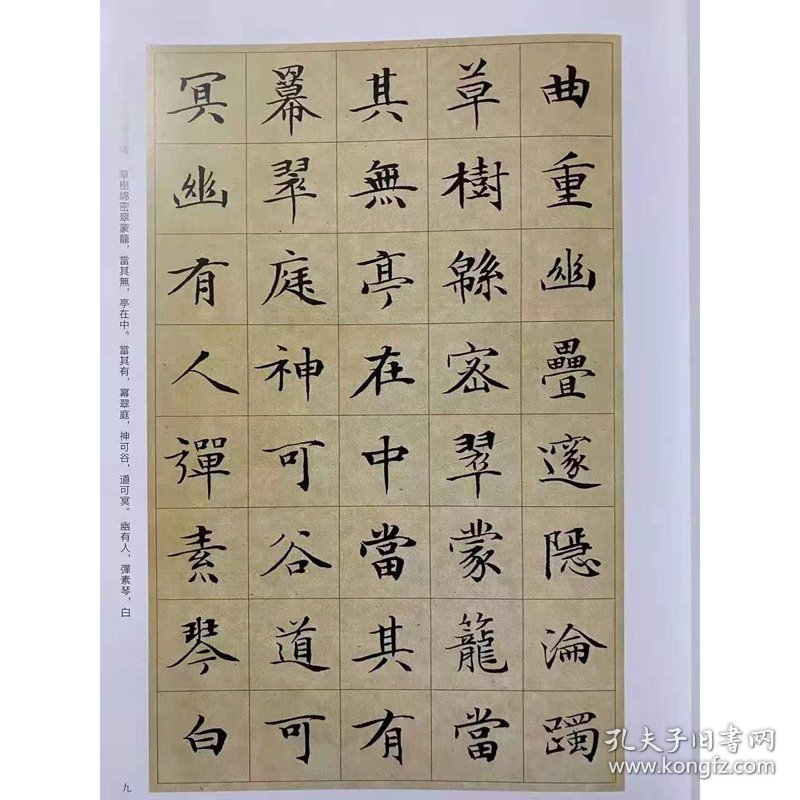 曲重幽疊邃隱淪躅
草樹緜密翠蒙籠當
其無亭在中當其有
冪翠庭神可谷道可
冥幽有人彈素琴白
草樹綿密翠蒙籠，當其無，亭在中。當其有，冪翠庭，神可谷，道可冥。幽有人，彈素琴，白
九
孔夫子旧书网
www.kongfz.com